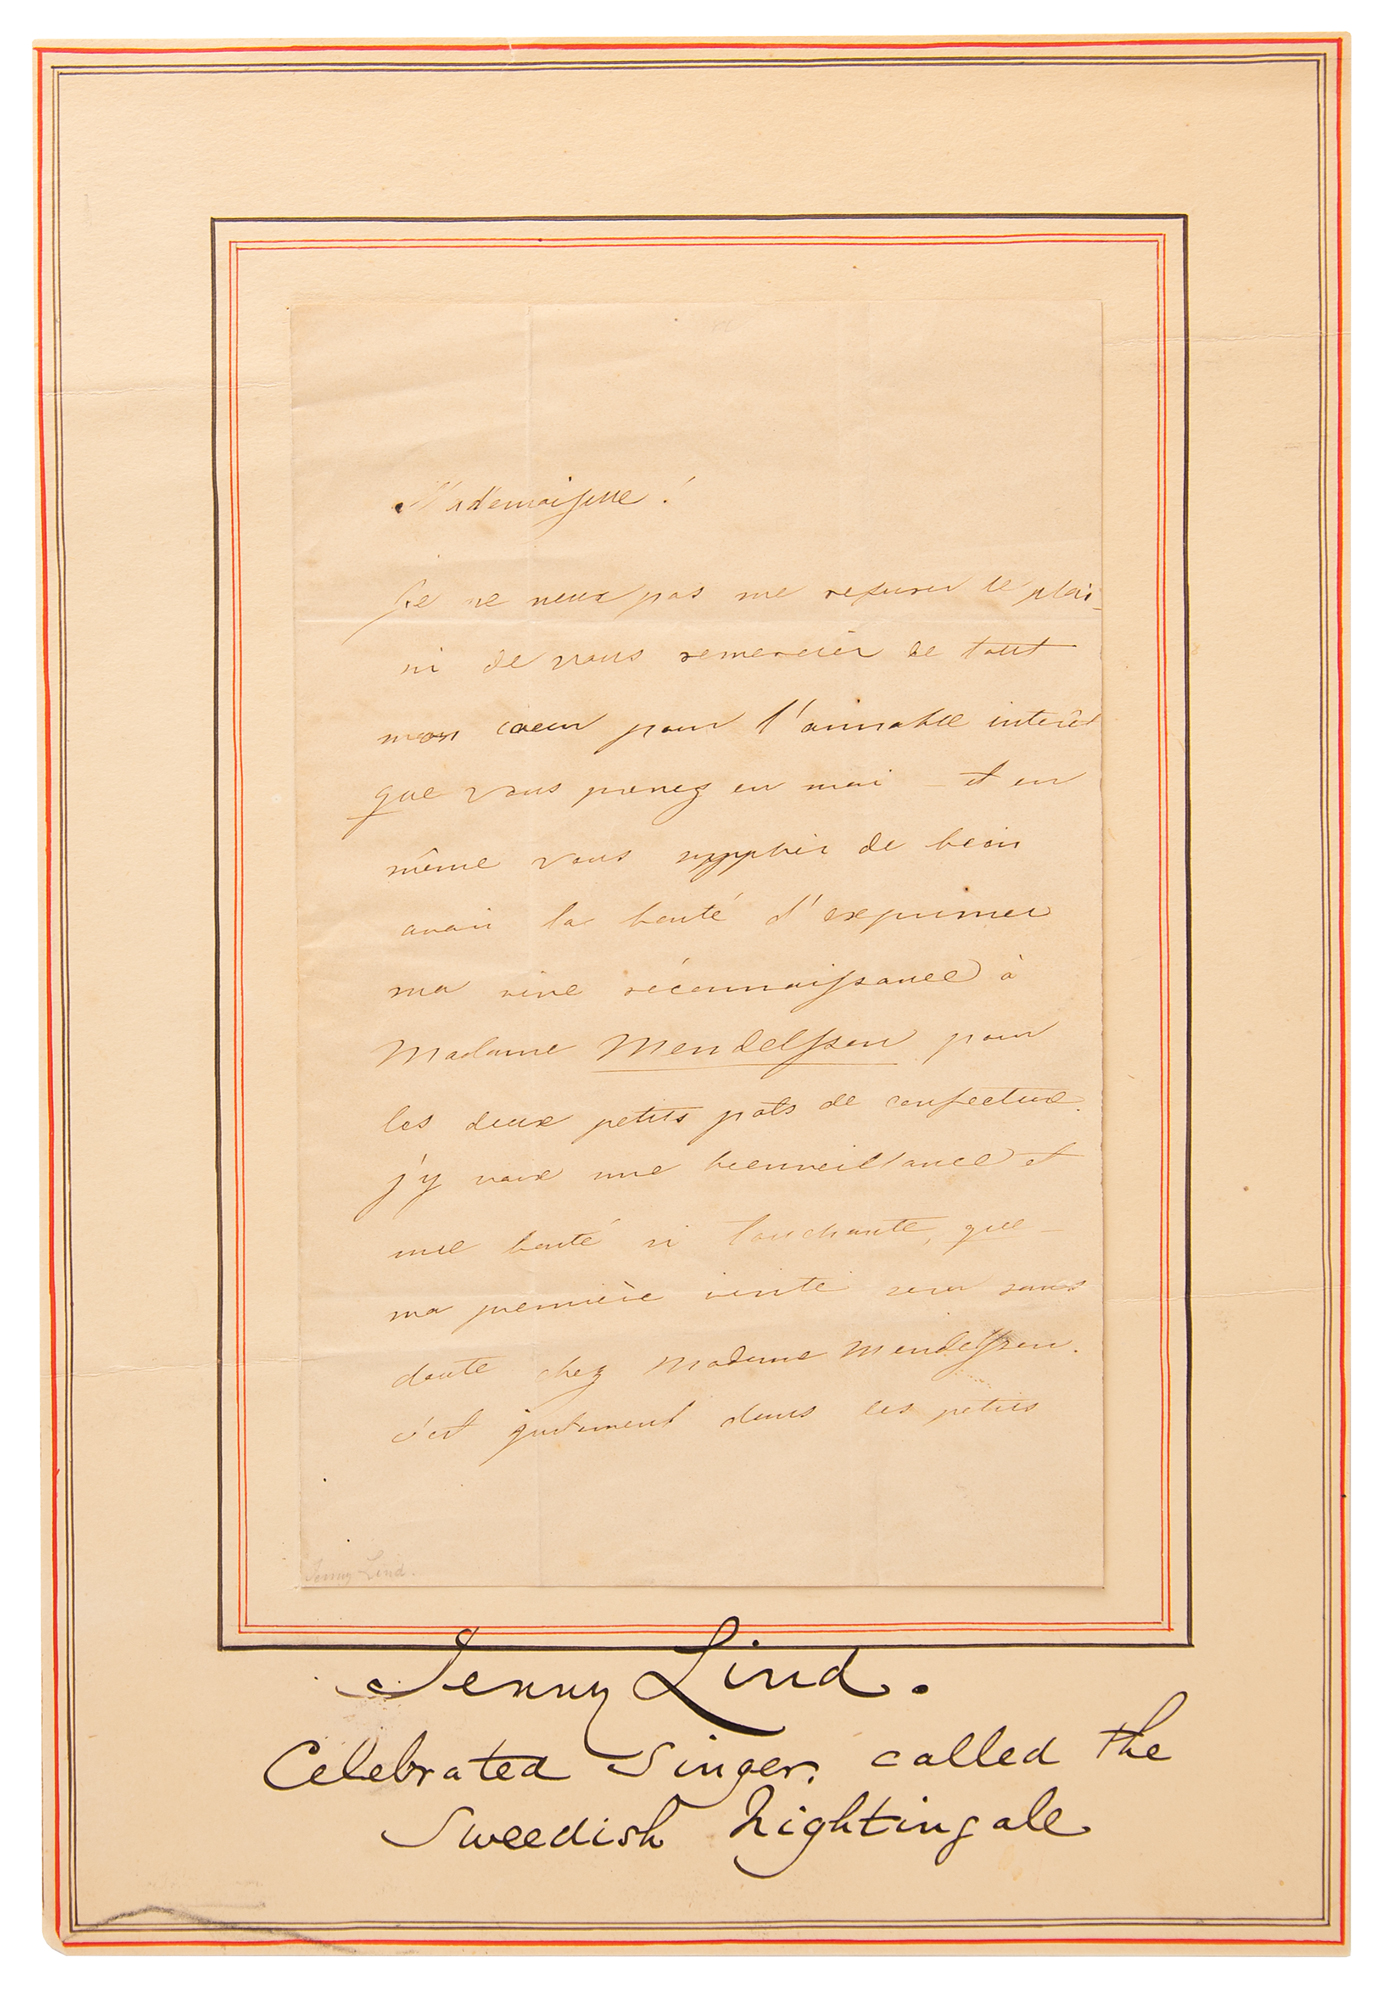 Mademoiselle!
Je ne veux pas me refuser le plai-
sir de vous remercier de tout
mon coeur pour l'aimable interêt
que vous prenez en moi - et en
même vous supplier de bien
avoir la bonté d'exprimer
ma vive réconnaissance à
Madame Mendelsson pour
les deux petits pots de confecture.
j'y voix une bienveillance et
une bonté si touchante, que -
ma première visite sera sans
doute chez Madame Mendelsson.
c'est justement dans les petits
Jenny Lind.
Jenny Lind.
Celebrated Singer, called the
Sweedish Nightingale